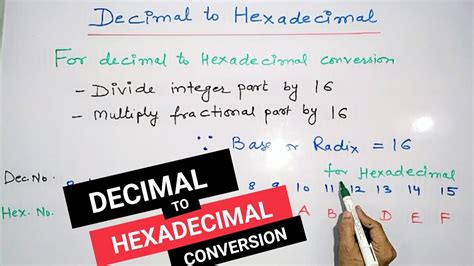 Decimal to Hexadecimal
For decimal to Hexadecimal conversion
- Divide integer part by 16
- Multiply fractional part by 16
∵ Base or Radix = 16
for Hexadecimal
Dec. No. 8 9 10 11 12 13 14 15
Hex. No. A B D E F
DECIMAL
TO
HEXADECIMAL
CONVERSION